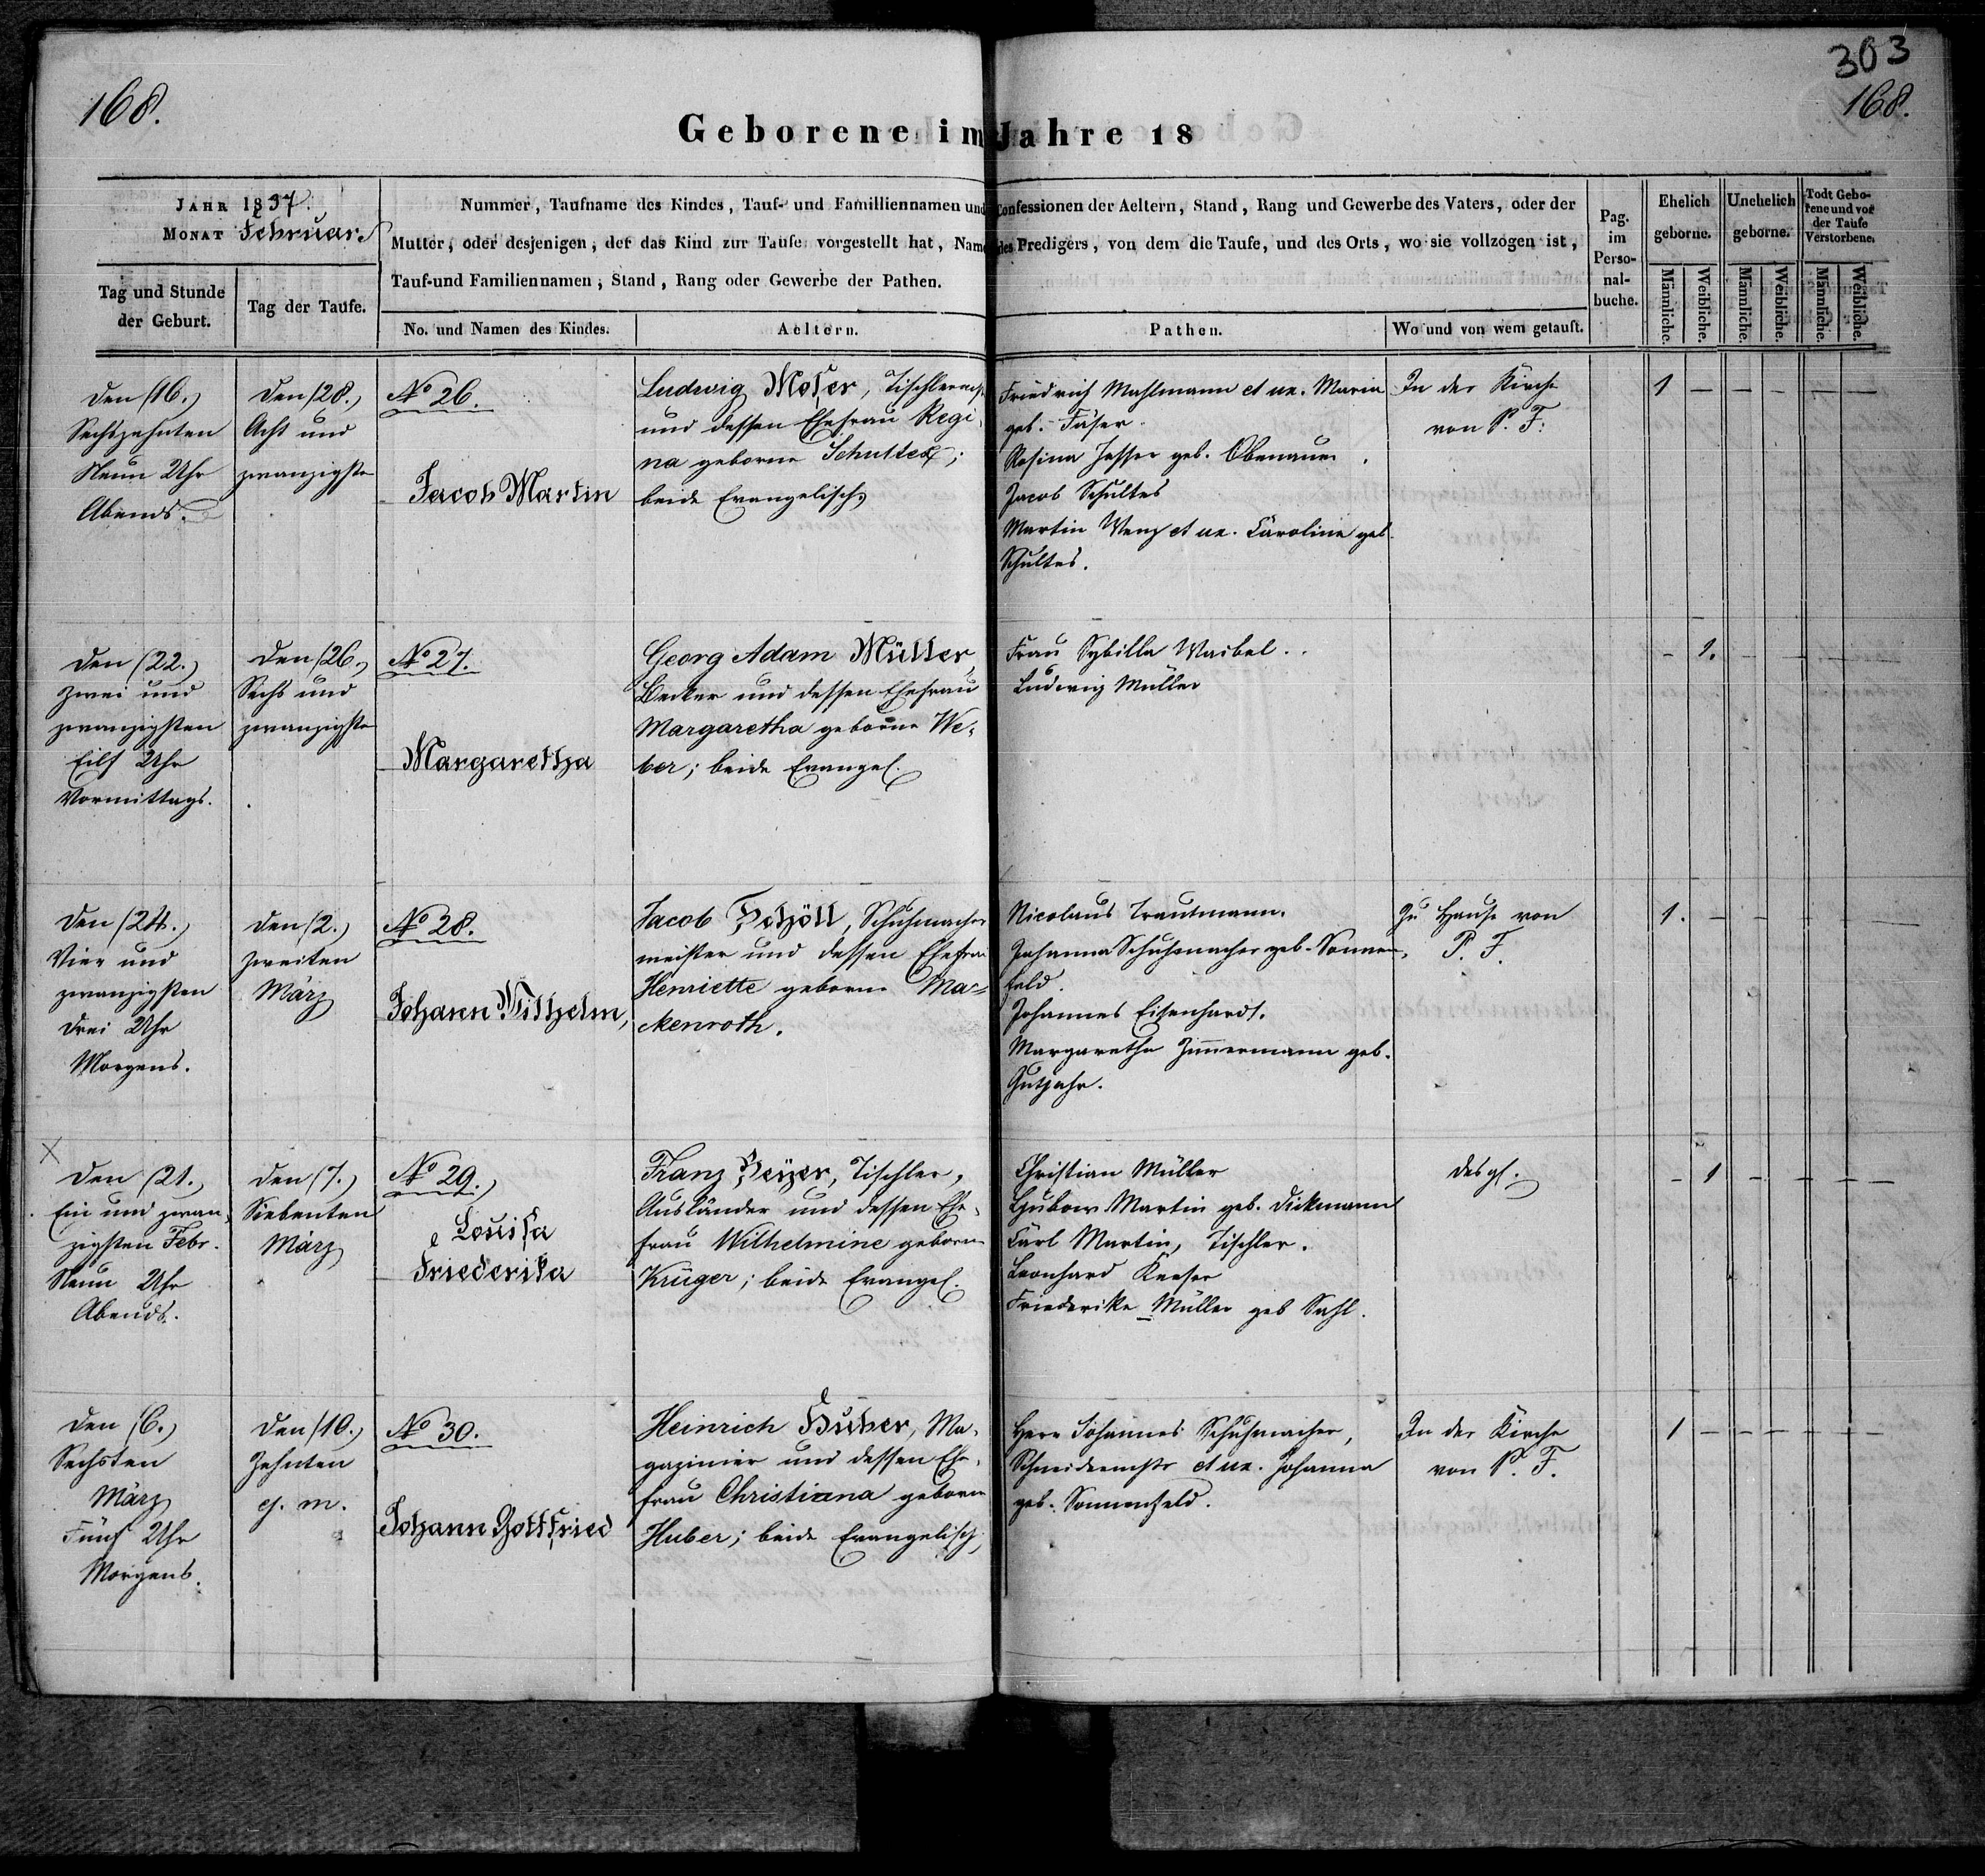 168.
303
168.
Geborene im Jahre 18
JAHR 1837.
MONAT Februar
Tag und Stunde der Geburt.
Tag der Taufe.
Nummer, Taufname des Kindes, Tauf- und Familliennamen und Confessionen der Aeltern, Stand, Rang und Gewerbe des Vaters, oder der
Mutter, oder desjenigen, der das Kind zur Taufe vorgestellt hat, Name des Predigers, von dem die Taufe, und des Orts, wo sie vollzogen ist,
Tauf-und Familiennamen, Stand, Rang oder Gewerbe der Pathen.
No. und Namen des Kindes.
Aeltern.
Pathen.
Wo und von wem getauft.
Pag. im Perso-nal-buche.
Ehelich geborne.
Unehelich geborne.
Todt Gebo-rene und vor der Taufe Verstorbene.
Männliche. Weibliche. Männliche. Weibliche. Männliche. Weibliche.
Den (16.)
Sechszehnten
Neun Uhr
Abends.
Den (28.)
Acht und
zwanzigste
No 26.
Jacob Martin
Ludwig Moser, Tischlermst.
und dessen Ehefrau Regi-
na geborne Schultes;
beide Evangelisch
Friedrich Mahlmann et ux. Maria
geb. Fäser
Rosina Jesser geb. Obenauer
Jacob Schultes
Martin Wenz et ux. Caroline geb.
Schultes.
In der Kirche
von P. F.
1 — — — — —
Den (22.)
Zwei und
zwanzigsten
Eilf Uhr
Vormittags.
Den (26.)
Sechs und
zwanzigste
No 27.
Margaretha
Georg Adam Müller,
Becker und dessen Ehefrau
Margaretha geborne We-
ber; beide Evangel.
Frau Sybilla Waibel.
Ludwig Müller
— 1. — — — —
Den (24.)
Vier und
zwanzigsten
Drei Uhr
Morgens.
Den (2.)
Zweiten
März
No 28.
Johann Wilhelm,
Jacob Schöll, Schuhmacher
meister und dessen Ehefrau
Henriette geborne Ma-
ckenroth.
Nicolaus Trautmann.
Johanna Schuhmacher geb. Sonnen-
feld.
Johannes Eisenhardt.
Margaretha Zimmermann geb.
Gutjahr.
Zu Hause von
P. F.
1. — — — — —
Den (21.)
Ein und zwan-
zigsten Febr.
Neun Uhr
Abends.
Den (7.)
Siebenten
März
No 29.
Louisa
Friederika
Franz Beyer, Tischler,
Ausländer und dessen Ehe-
frau Wilhelmine geborne
Krüger; beide Evangel.
Christian Müller
Martin geb. Dickmann
Carl Martin, Tischler.
Leonhard Keeser
Friederike Müller geb Sahl.
desgl.
— 1 — — — —
Den (6.)
Sechsten
März
Fünf Uhr
Morgens.
Den (10.)
Zehnten
ej. m.
No 30.
Johann Gottfried
Heinrich Huber, Ma-
gazinier und dessen Ehe-
frau Christiana geborne
Huber; beide Evangelisch
Herr Johannes Schuhmacher,
Schneidermstr. et ux. Johanna
geb. Sonnenfeld.
In der Kirche
von P. F.
1 — — — — —